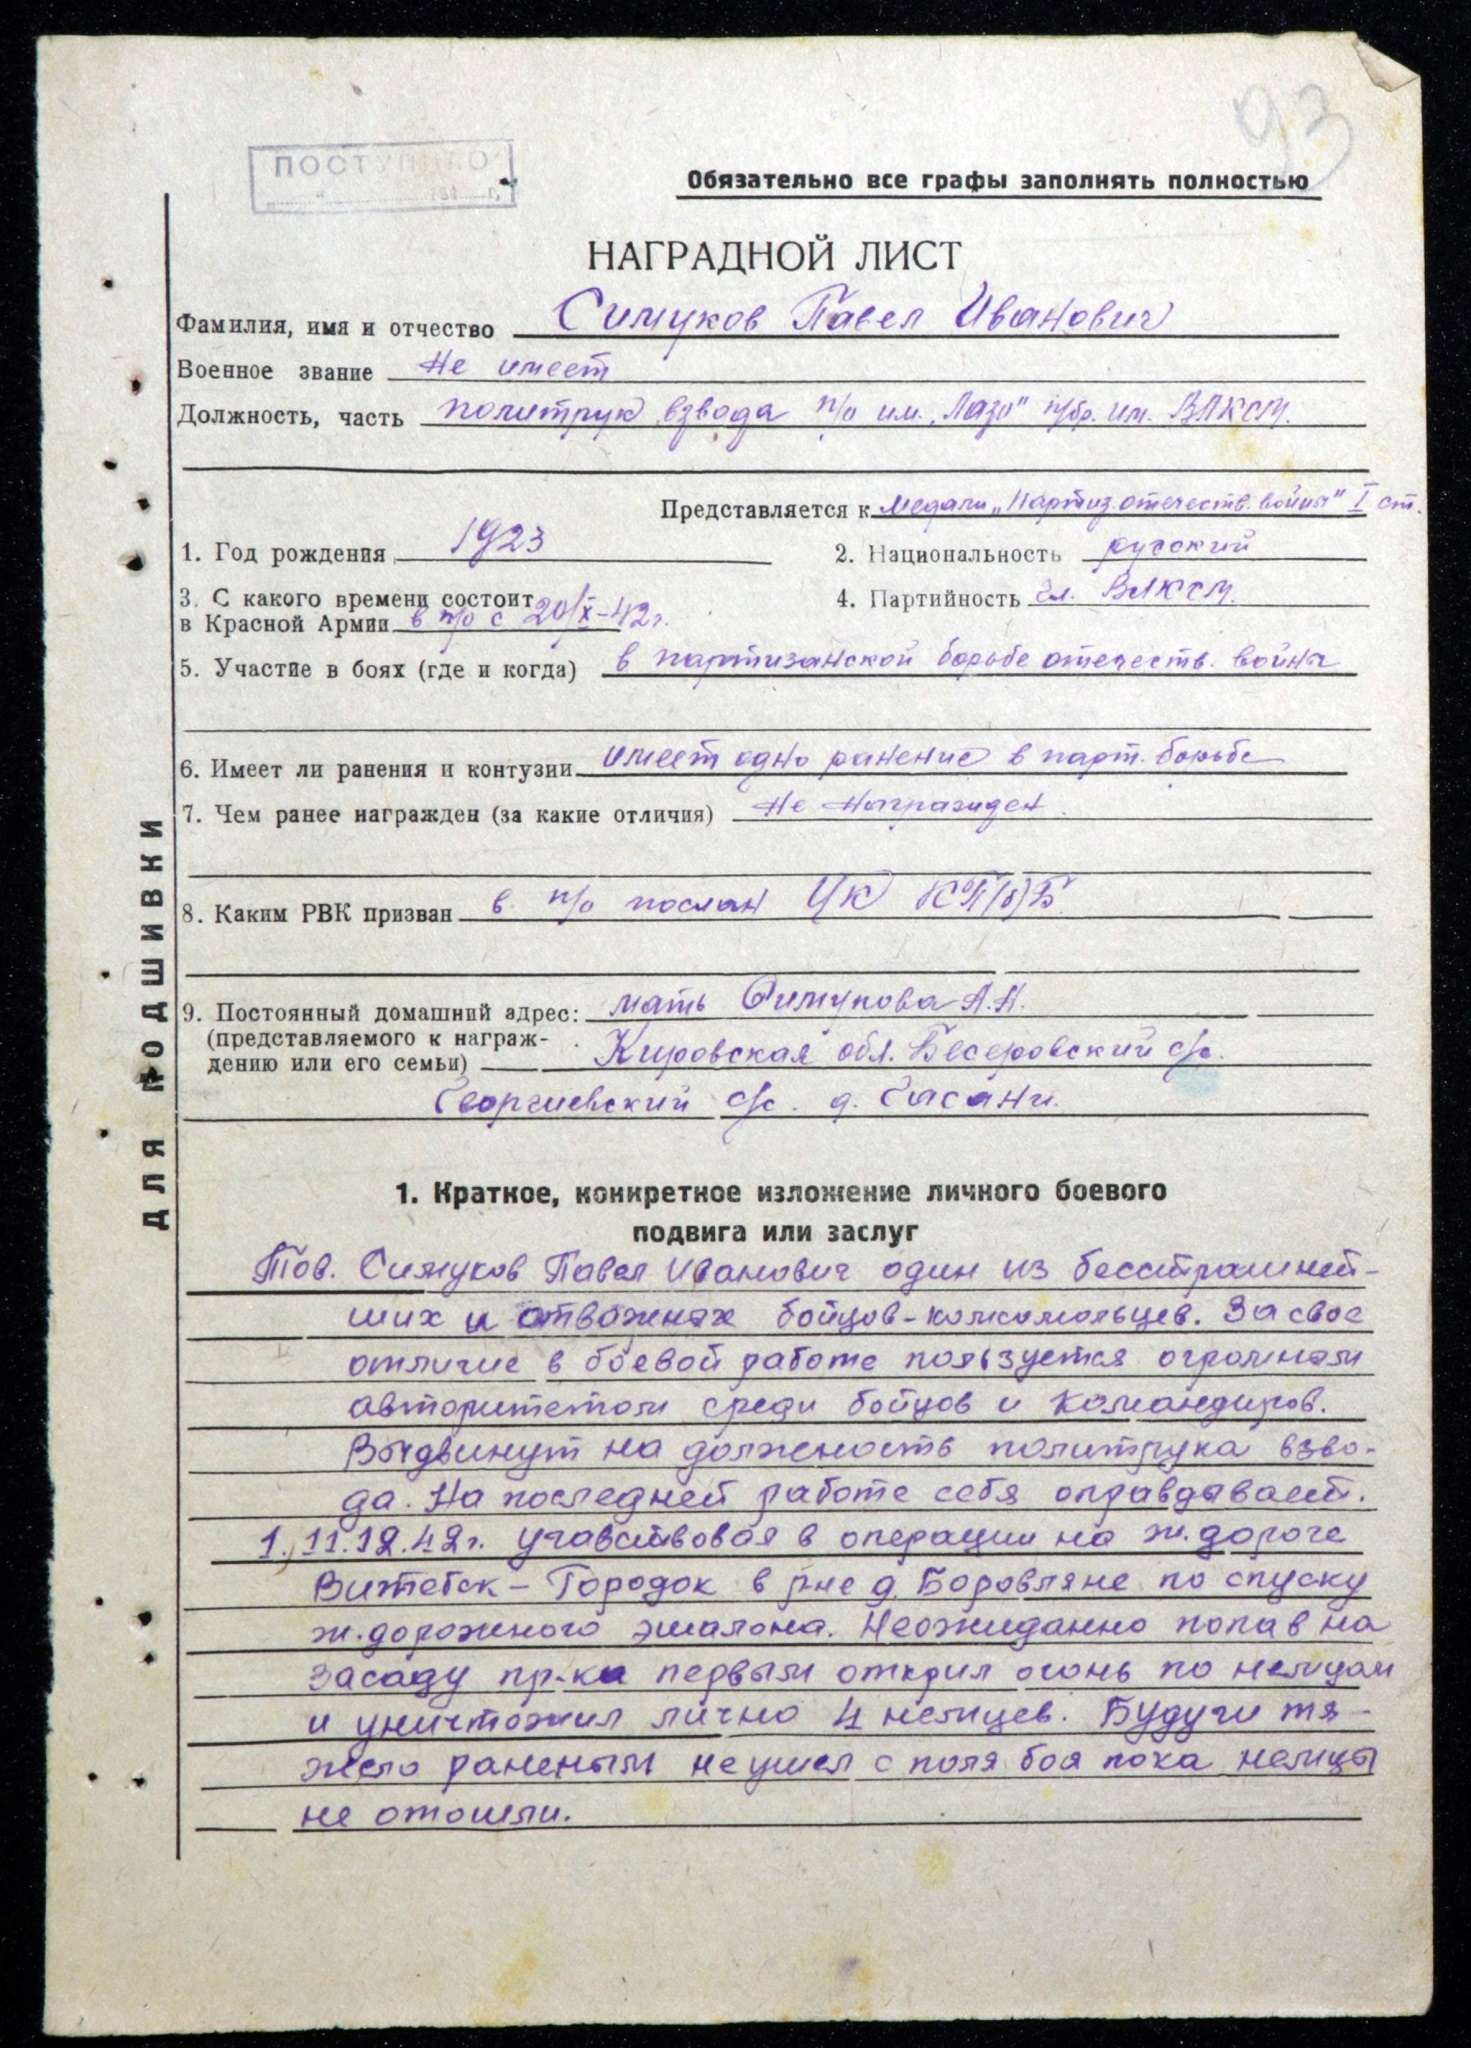 93
ПОСТУПИЛО
Обязательно все графы заполнять полностью
НАГРАДНОЙ ЛИСТ
Фамилия, имя и отчество Симуков Павел Иванович
Военное звание не имеет
Должность, часть политрук взвода п/о им. "Лазо" п/бр. им. ВЛКСМ.
Представляется к медали "Партиз. отечеств. войны" I ст.
1. Год рождения 1923
2. Национальность русский
3. С какого времени состоит
в Красной Армии в п/о с 20/X-42 г.
4. Партийность чл. ВЛКСМ.
5. Участие в боях (где и когда) в партизанской борьбе отечеств. войны
6. Имеет ли ранения и контузии имеет одно ранение в парт. борьбе
7. Чем ранее награжден (за какие отличия) не награжден.
8. Каким РВК призван в п/о послан ЦК КП(б)Б.
9. Постоянный домашний адрес: мать Симукова А.Н.
(представляемого к награж-
дению или его семьи) Кировская обл.
Георгиевский с/с. д.
ДЛЯ ПОДШИВКИ
1. Краткое, конкретное изложение личного боевого
подвига или заслуг
Тов. Симуков Павел Иванович один из бесстрашней-
ших и отважных бойцов-комсомольцев. За свое
отличие в боевой работе пользуется огромным
авторитетом среди бойцов и командиров.
Выдвинут на должность политрука взво-
да. На последней работе себя оправдывает.
1. 11.12.42 г. учавствовал в операции на ж. дороге
Витебск - Городок в р-не д. Боровляне по спуску
ж. дорожного эшалона. Неожиданно попав на
засаду пр-ка первым открил огонь по немцам
и уничтожил лично 4 немцев. Будучи тя-
жело раненым не ушел с поля боя пока немцы
не отошли.